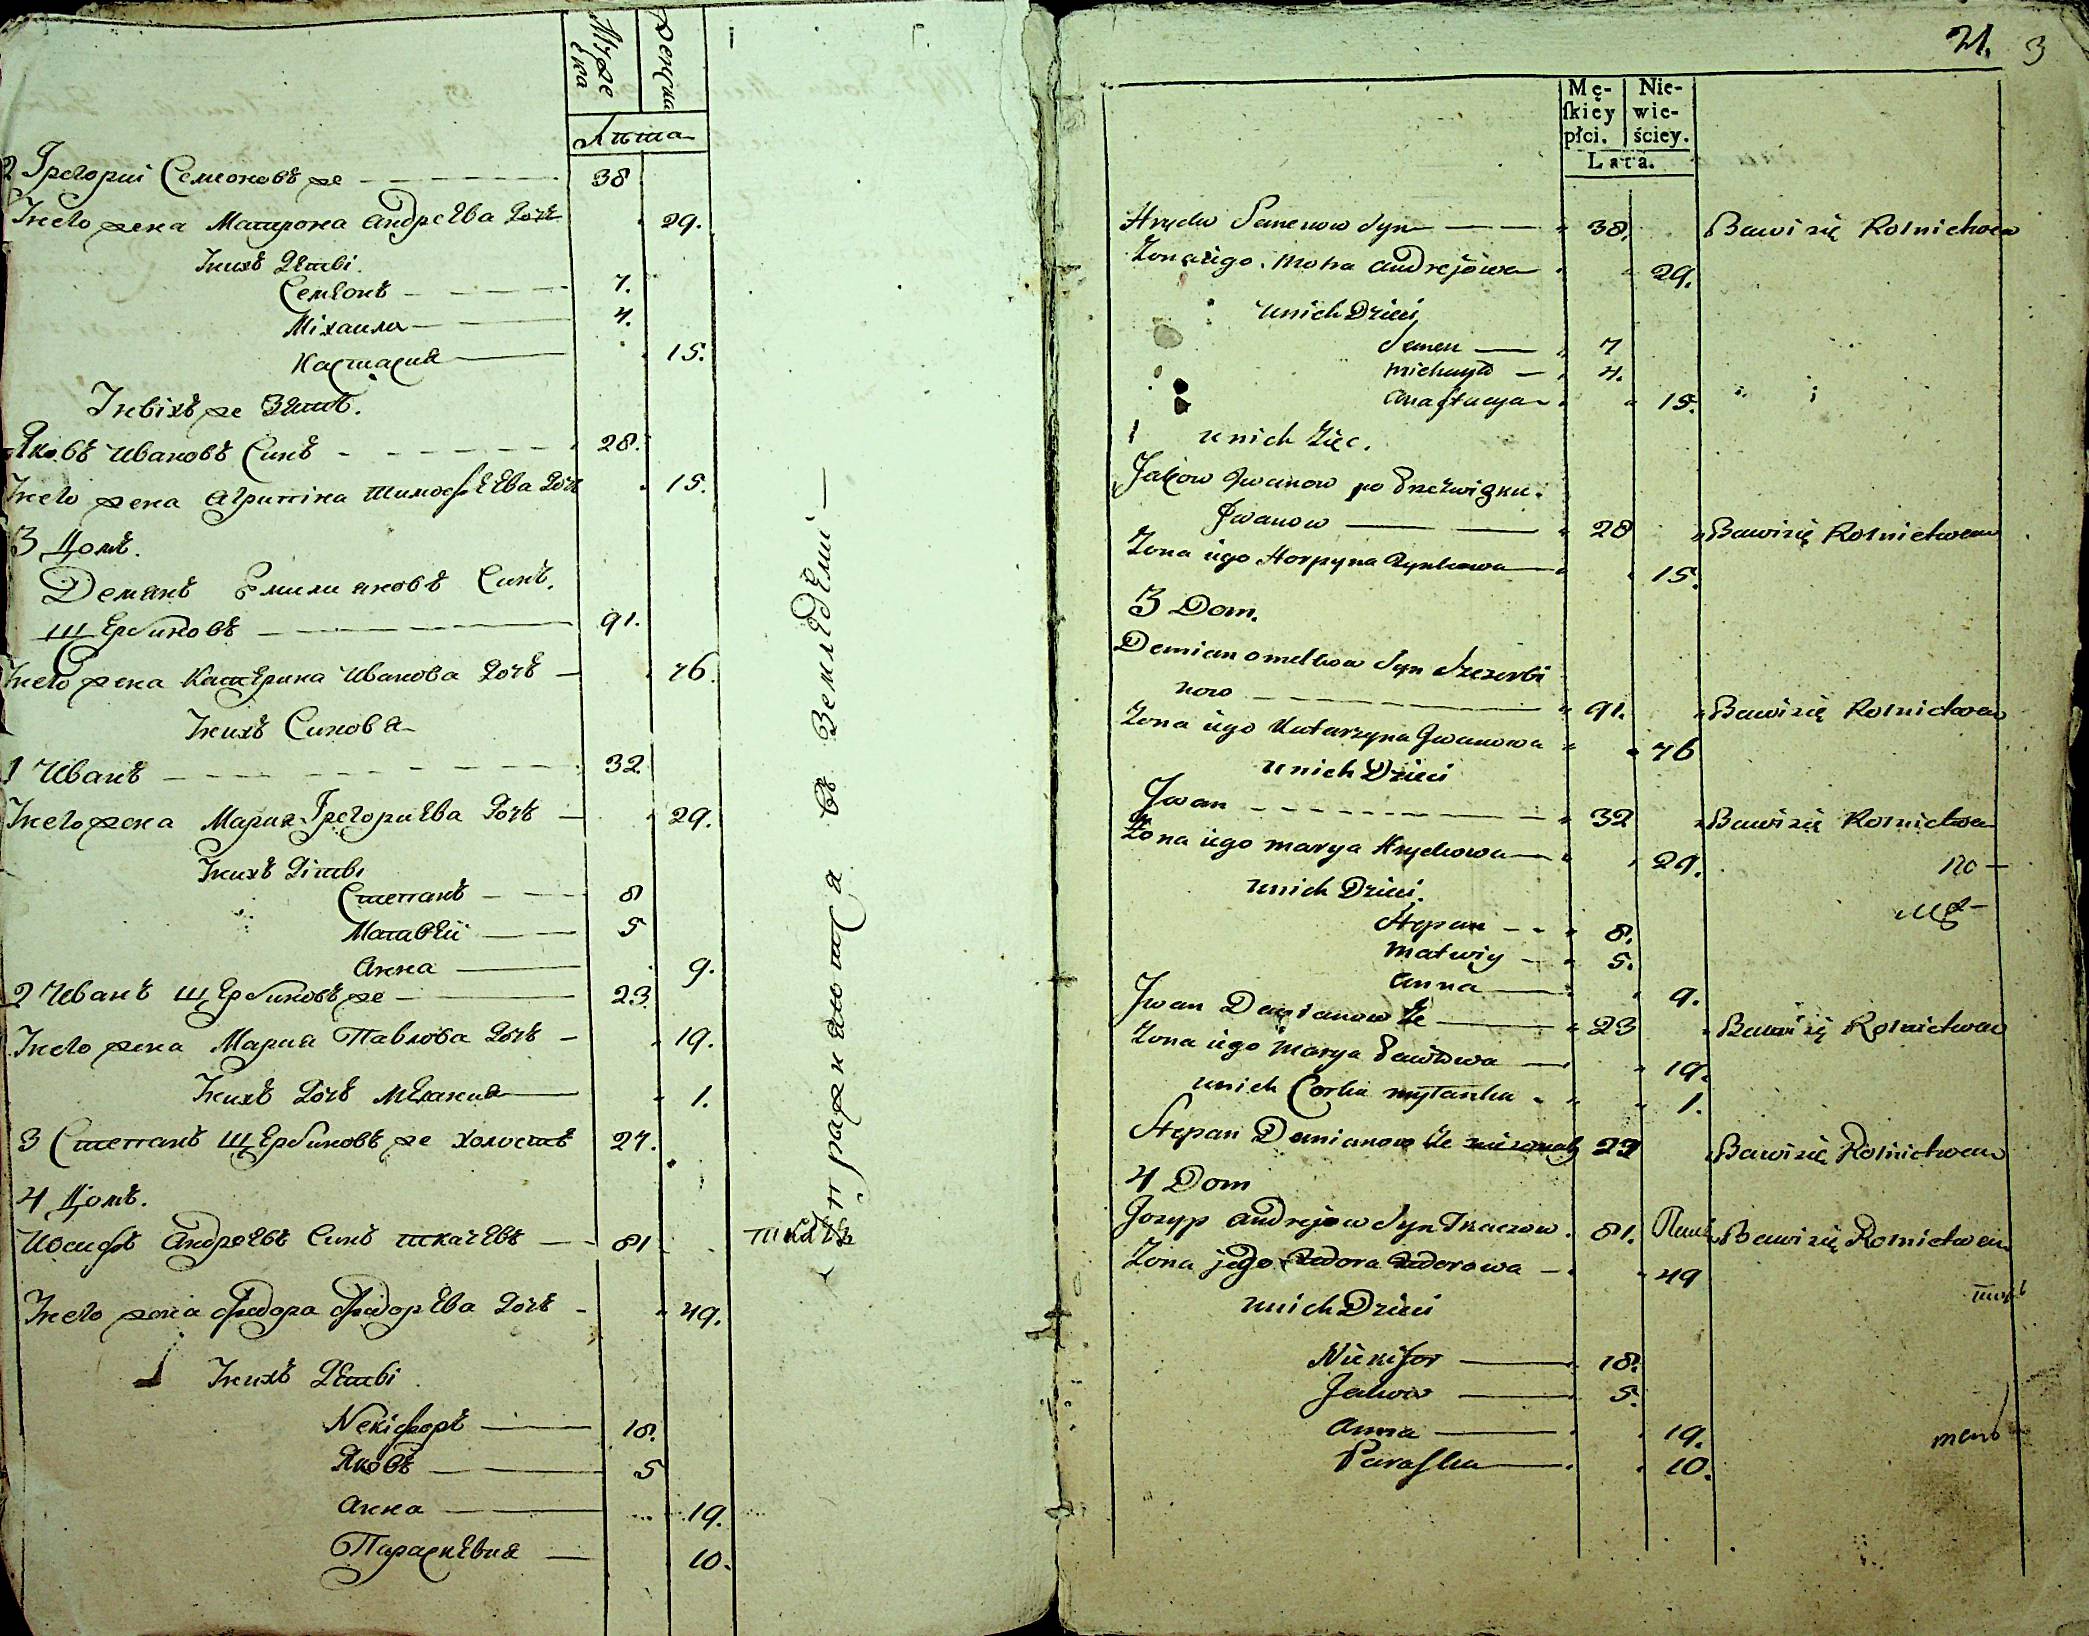 Муже
ска
женска
Лѣта
2 Грегорий Семеоновъ же 38
І него жена Матрона Андреева дочь 29.
І нихъ дѣтві.
Семеонъ 7.
Міхаила 4.
Настасия 15.
І нвіхъ же Зять.
Яковъ Ивановъ Синъ 28.
І него жена Агрипіна Тимофѣева дочь 15.
3 Домъ.
Демянъ Емилиановъ Синъ.
Щербиновъ 91.
І него жена Катерина Иванова дочь 76.
І нихъ Синовя
1 Иванъ 32
І него жена Мария Грегориева дочь 29.
І нихъ дітві
Степанъ 8
Матвей 5
Анна 9.
2 Иванъ Щербиновъ же 23
І него жена Мария Павлова дочь 19.
І нихъ дочь Мелания 1.
3 Степанъ Щербиновъ же холостъ 27.
4 Домъ.
Иосифъ Андреевъ Синъ Ткачевъ 81
І него жена Федора Федорева дочь 49.
І нихъ Детві
Некіфоръ 18.
Яковъ 5
Анна 19.
Параскевия 10.
упражняются въ Земледелиі
21. 3
Mę-
ſkiey
płci.
Nie-
wie-
ściey.
Lata.
Hryćko Semenow Syn 38. Bawi się Rolnictwem
Zona iego Motra Andrejowa 29.
u nich Dzieci
Semen 7
Michayło 4.
Anaſtacya 15.
1 u nich Zięc.
Jakow Iwanow po Przezwisku.
Iwanow 28 Bawi się Rolnictwem
Zona iego Horpyna 15.
3 Dom.
Demian Omelkow Syn Szczerbi
now 91. Bawi się Rolnictwem
Zona iego Katarzyna Iwanowa 76
u nich Dzieci
Iwan 32 Bawi się Rolnictwem
Zona iego Marya Hryckowa 29. по
u nich Dzieci.
Stepan 8.
Matwiy 5.
Anna 9.
Iwan Demianow że 23 Bawi się Rolnictwem
Zona iego Marya Pawłowa 19.
u nich Corka Myłanka 1.
Stepan Demianow że 27 Bawi się Rolnictwem
4 Dom
Jozyp Andrejow Syn Tkaczow. 81. Bawi się Rolnictwem
Zona jego Fedora Fedorowa 49
u nich Dzieci
Nickifor 18.
Jakow 5.
Anna 19.
Paraſka 10.